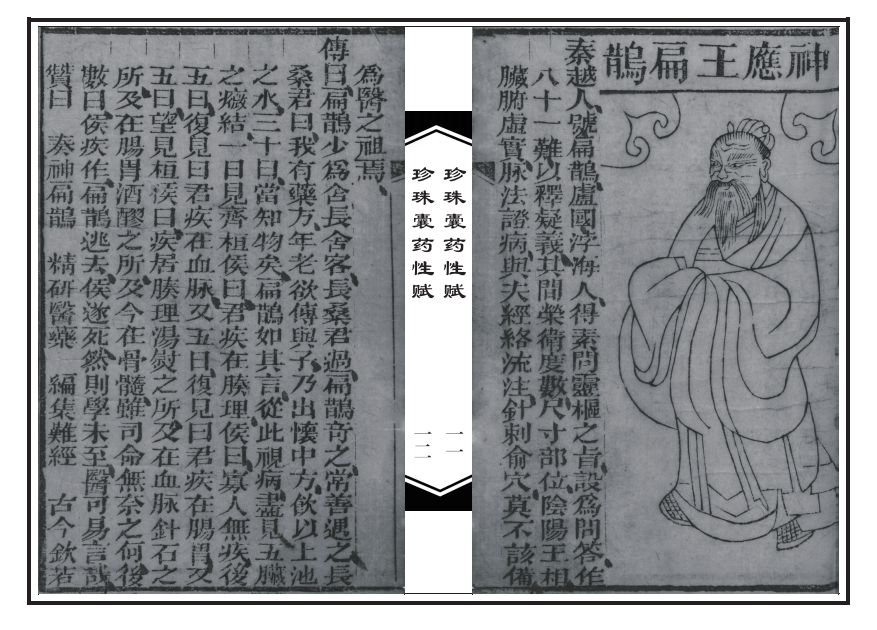 神應王扁鵲
秦越人號扁鵲盧國渟海人得素問靈樞之旨設為問答作
八十一難以釋疑義其間榮衛度數尺寸部位陰陽王相
臟腑虛實脉法證病與夫經絡流注針刺俞穴莫不該備
珍珠囊药性赋
一一
珍珠囊药性赋
一二
為醫之祖焉
傳曰扁鵲少為舍長舍客長桑君過扁鵲竒之常善遇之長
桑君曰我有藥方年老欲傳與子乃出懷中方飲以上池
之水三十日當知物矣扁鵲如其言從此視病盡見五臟
之癥結一日見齊桓侯曰君疾在腠理侯曰寡人無疾後
五日復見曰君疾在血脉又五日復見曰君疾在腸胃又
五日望見桓侯曰疾居腠理湯熨之所及在血脉針石之
所及在腸胃酒醪之所及今在骨髓雖司命無奈之何後
數日侯疾作扁鵲逃去侯遂死然則學未至醫可易言哉
贊曰 秦神扁鵲 精研醫藥 編集難經 古今欽若